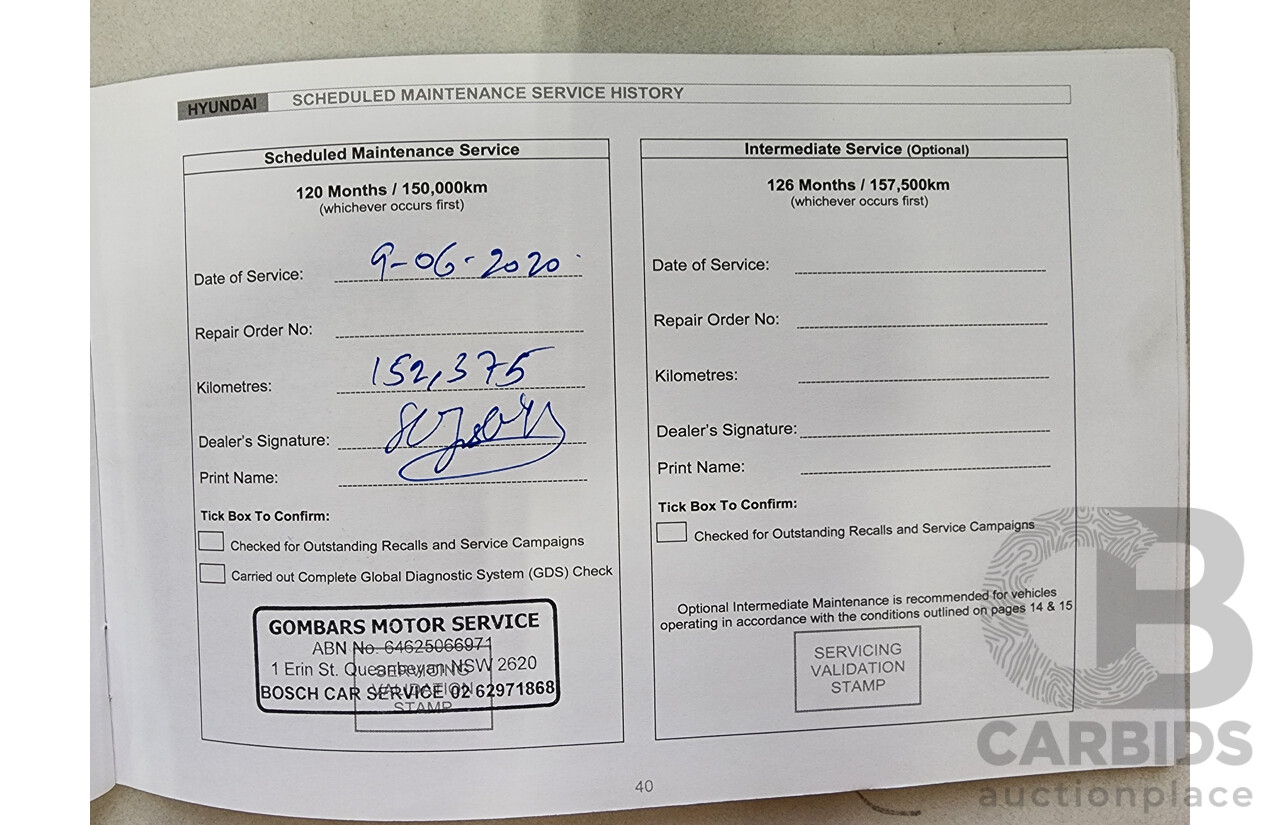 HYUNDAI SCHEDULED MAINTENANCE SERVICE HISTORY
Scheduled Maintenance Service
120 Months / 150,000km
(whichever occurs first)
Date of Service: 9-06-2020
Repair Order No:
Kilometres: 152,375
Dealer's Signature:
Print Name:
Tick Box To Confirm:
Checked for Outstanding Recalls and Service Campaigns
Carried out Complete Global Diagnostic System (GDS) Check
GOMBARS MOTOR SERVICE
ABN No. 64625066971
1 Erin St. Queanbeyan NSW 2620
BOSCH CAR SERVICE 02 62971868
SERVICING
VALIDATION
STAMP
Intermediate Service (Optional)
126 Months / 157,500km
(whichever occurs first)
Date of Service:
Repair Order No:
Kilometres:
Dealer's Signature:
Print Name:
Tick Box To Confirm:
Checked for Outstanding Recalls and Service Campaigns
Optional Intermediate Maintenance is recommended for vehicles
operating in accordance with the conditions outlined on pages 14 & 15
SERVICING
VALIDATION
STAMP
40
CB
CARBIDS
auctionplace